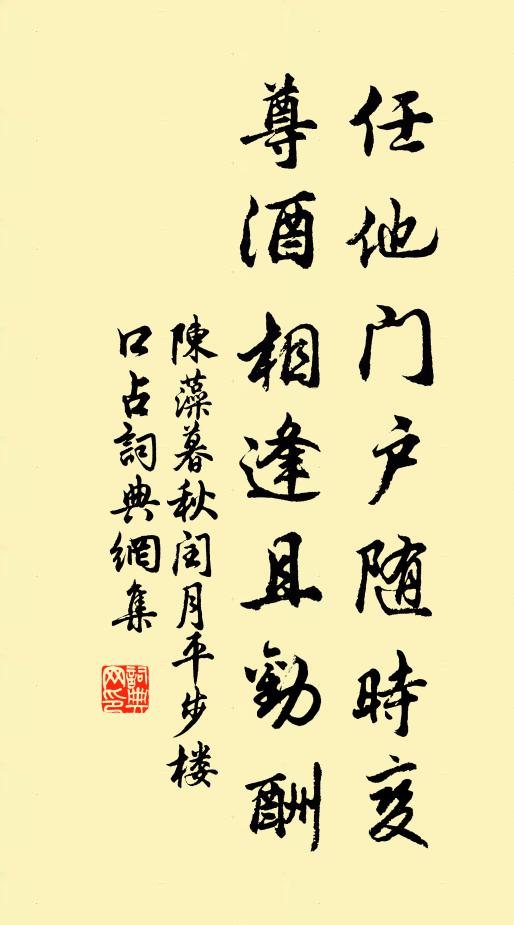 任他门户随時变
尊酒相逢且勸酬
陳藻暮秋闰月平步楼
口占詞典網集
詞典
网印